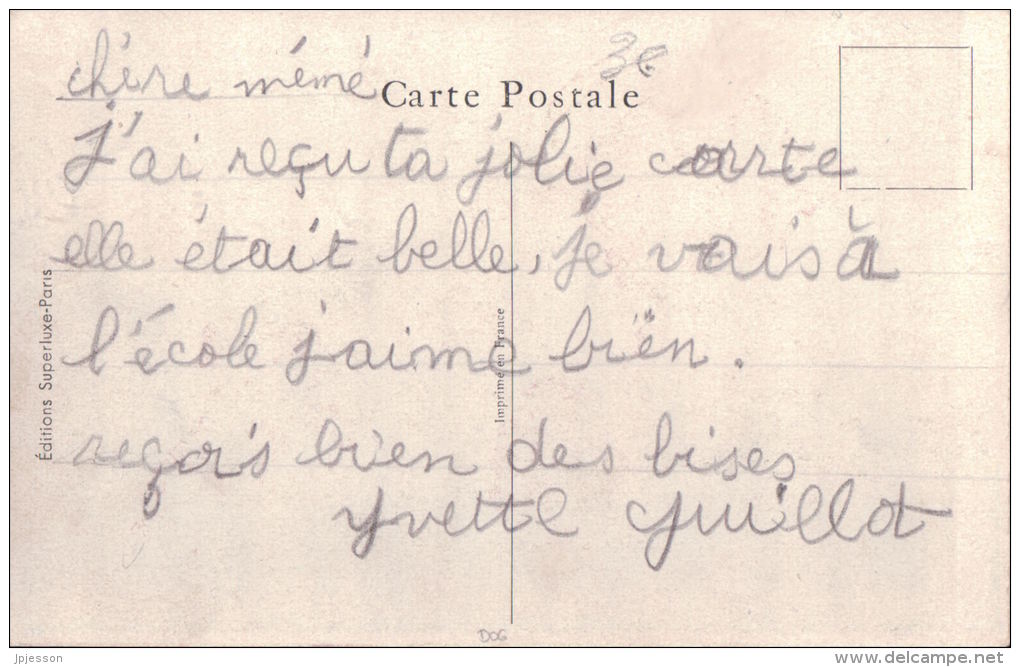 3€
chère mémé
Carte Postale
J'ai reçu ta jolie carte
elle était belle, je vais à
l'école j'aime bien.
reçois bien des bises
yvette Guillot
Éditions Superluxe-Paris
Imprimé en France
DOG
jpjesson
delcampe.net